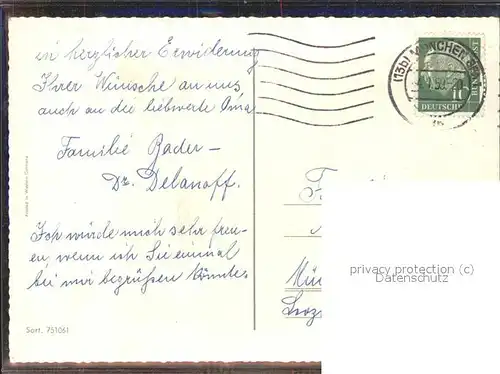 in herzlicher Erwiderung
Ihrer Wünsche an uns,
auch an die liebwerte Oma
Familie Bader -
Dr. Delanoff.
Ich würde mich sehr freu-
en, wenn ich Sie einmal
bei mir begrüßen könnte.
Sort. 751061
Printed in Western Germany
(13b) MÜNCHEN
10
DEUTSCHE
F
Mün
privacy protection (c)
Datenschutz